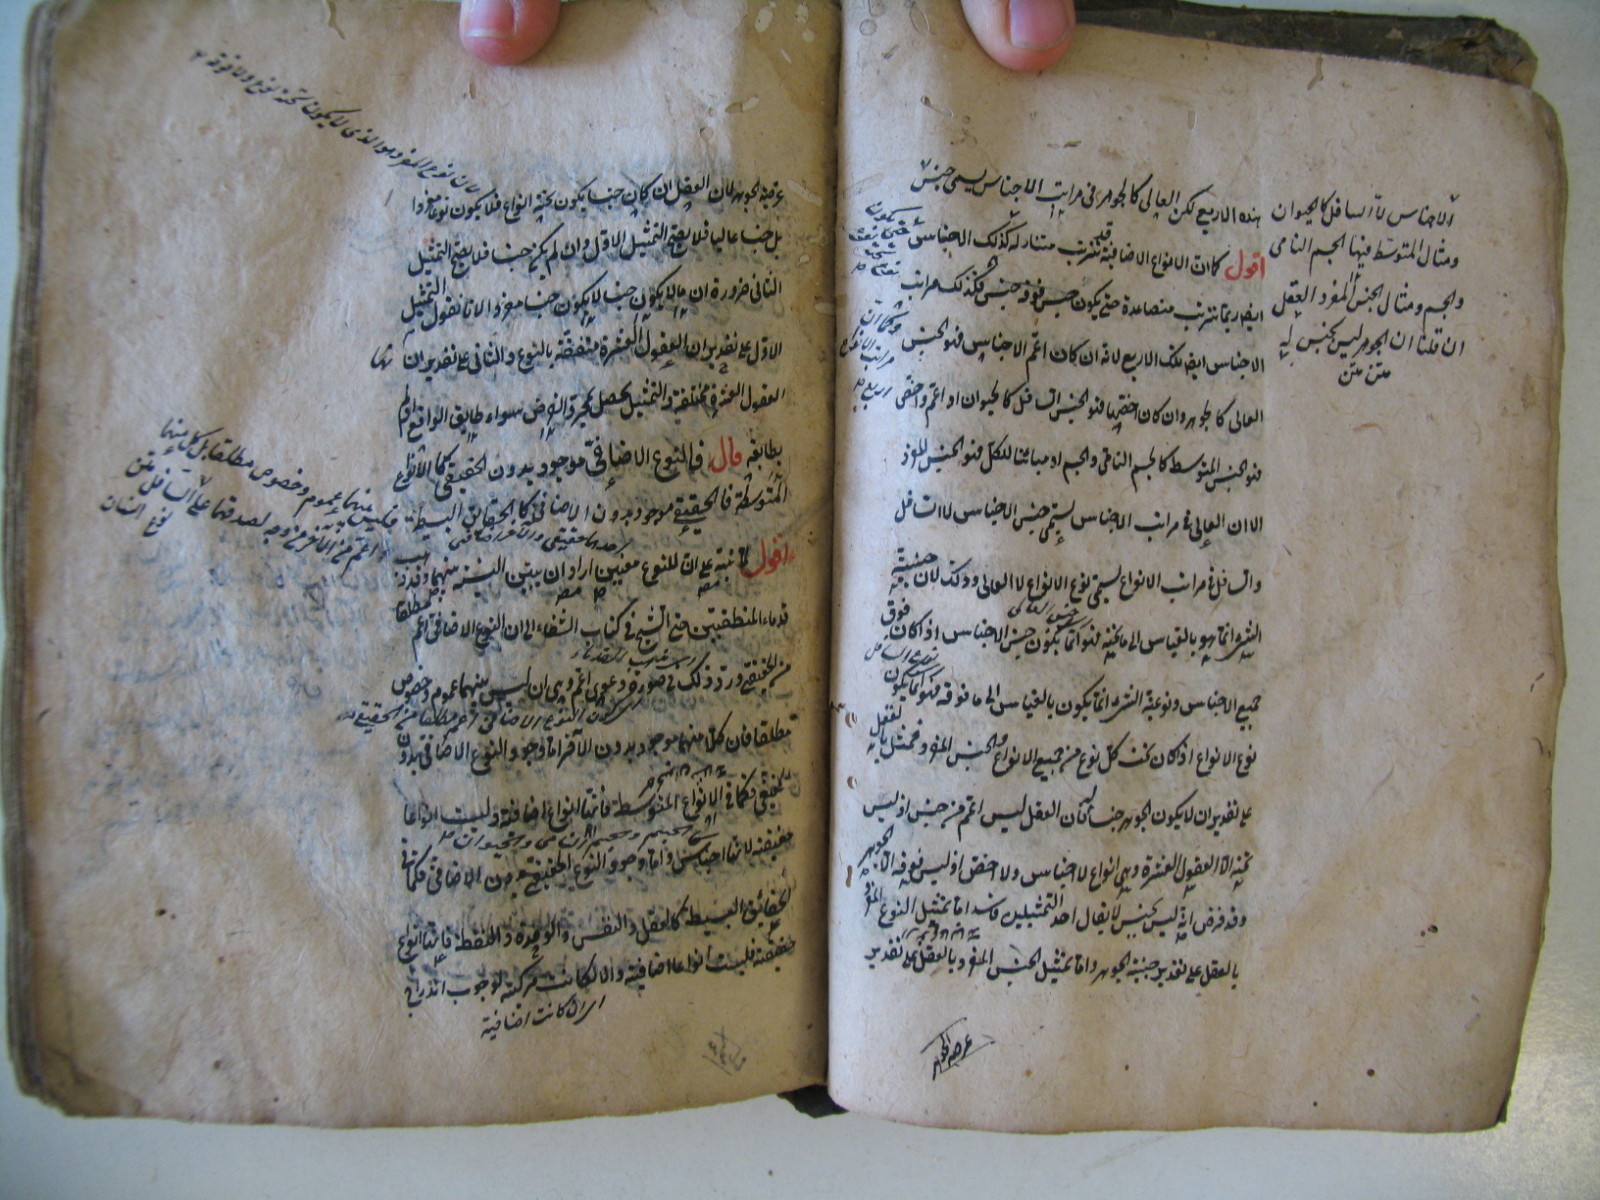 هذه الاربع لكن العالى كالجوهر فى مراتب الاجناس يسمى جنس
الاجناس لا السافل كالحيوان
ومثال المتوسط فيها الجسم النامى
والجسم ومثال الجنس المفرد العقل
ان قلنا ان الجوهر ليس بجنس له
متن متن
اقول كما ان الانواع الاضافية قد تترتب متنازلة كذلك الاجناس
ايضا ربما تترتب متصاعدة حتى يكون جنس فوقه جنس فكذلك مراتب
الاجناس ايضا تلك الاربع لانه ان كان اعم الاجناس فهو الجنس
العالى كالجوهر وان كان اخصها فهو الجنس السافل كالحيوان او اعم واخص
فهو الجنس المتوسط كالجسم النامى والجسم او مباينا للكل فهو الجنس المفرد
الا ان العالى فى مراتب الاجناس يسمى جنس الاجناس لا السافل
والسافل فى مراتب الانواع يسمى نوع الانواع لا العالى وذلك لان جنسية
الشئ انما هو بالقياس الى ما تحته فهو انما يكون جنس الاجناس اذا كان فوق
جميع الاجناس ونوعية الشئ انما يكون بالقياس الى ما فوقه فهو انما يكون
نوع الانواع اذا كان تحت كل نوع من جميع الانواع والجنس المفرد ممثل بالعقل
على تقدير ان لا يكون الجوهر جنسا له فان العقل ليس اعم من جنس اذ ليس
تحته الا العقول العشرة وهى انواع لا اجناس ولا اخص اذ ليس فوقه الا الجوهر
وقد فرض انه ليس بجنس لا يقال احد التمثيلين فاسد اما تمثيل النوع المفرد
بالعقل على تقدير جنسية الجوهر واما تمثيل الجنس المفرد بالعقل على تقدير
عرضية الجوهر
عرضية الجوهر لان العقل ان كان جنسا يكون تحته انواع فلا يكون نوعا مفردا
بل جنسا عاليا فلا يصح التمثيل الاول وان لم يكن جنسا فلا يصح التمثيل
الثانى ضرورة ان ما لا يكون جنسا لا يكون جنسا مفردا لانا نقول التمثيل
الاول على تقدير ان العقول العشرة متفقة بالنوع والثانى على تقدير ان
العقول العشرة مختلفة والتمثيل يحصل بمجرد الفرض سواء طابق الواقع او لم
يطابقه قال والنوع الاضافى موجود بدون الحقيقى كالانواع
المتوسطة والحقيقى موجود بدون الاضافى كالحقائق البسيطة
فليس بينهما عموم وخصوص مطلقا بل كل منهما
اعم من الاخر من وجه لصدقهما على النوع السافل متن
اقول لما نبه على ان للنوع معنيين اراد ان يبين النسبة بينهما وقد ذهب
قدماء المنطقيين حتى الشيخ فى كتاب الشفاء الى ان النوع الاضافى اعم مطلقا
من الحقيقى ورد ذلك فى صورة دعوى اعم وهى ان ليس بينهما عموم وخصوص
مطلقا فان كلا منهما موجود بدون الاخر اما وجود النوع الاضافى بدون
الحقيقى فكما فى الانواع المتوسطة فانها انواع اضافية وليست انواعا
حقيقية لانها اجناس واما وجود النوع الحقيقى بدون الاضافى فكما فى
الحقائق البسيطة كالعقل والنفس والوحدة والنقطة فانها انواع
حقيقية وليست انواعا اضافية والا لكانت مركبة لوجوب اندراج
اى ان كانت اضافية